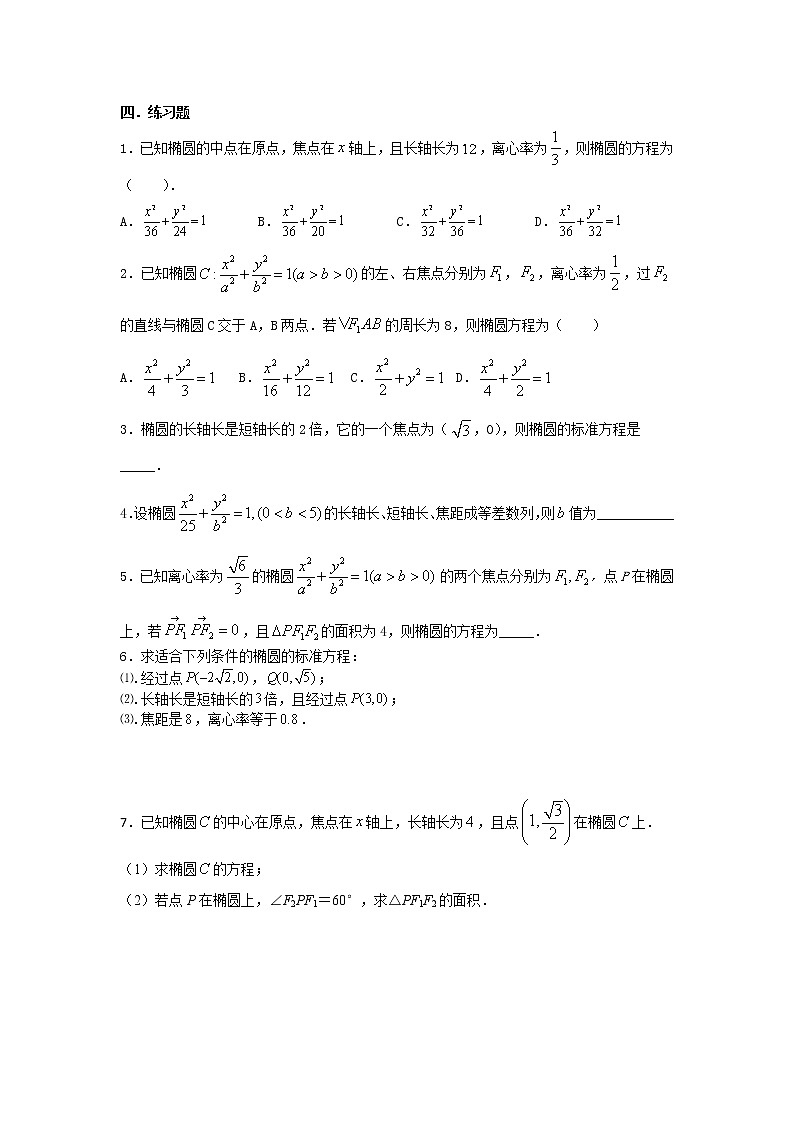 四．练习题
1.已知椭圆的中点在原点,焦点在 x 轴上,且长轴长为12,离心率为 1/3 ,则椭圆的方程为
(　　).
A. x²/36 + y²/24 = 1　B. x²/36 + y²/20 = 1　C. x²/32 + y²/36 = 1　D. x²/36 + y²/32 = 1
2.已知椭圆 C : x²/a² + y²/b² = 1(a > b > 0) 的左、右焦点分别为 F₁, F₂,离心率为 1/2 ,过 F₂
的直线与椭圆C交于A,B两点.若 VF₁AB 的周长为8,则椭圆方程为(　　)
A. x²/4 + y²/3 = 1　B. x²/16 + y²/12 = 1　C. x²/2 + y² = 1　D. x²/4 + y²/2 = 1
3.椭圆的长轴长是短轴长的2倍,它的一个焦点为( √3 ,0),则椭圆的标准方程是
_____.
4.设椭圆 x²/25 + y²/b² = 1, (0 < b < 5) 的长轴长、短轴长、焦距成等差数列,则 b 值为___________
5.已知离心率为 √6/3 的椭圆 x²/a² + y²/b² = 1(a > b > 0) 的两个焦点分别为 F₁, F₂, 点P在椭圆
上,若 →PF₁ →PF₂ = 0 ,且 ΔPF₁F₂ 的面积为4,则椭圆的方程为_____.
6.求适合下列条件的椭圆的标准方程:
⑴.经过点 P(−2√2,0), Q(0,√5);
⑵.长轴长是短轴长的3倍,且经过点 P(3,0);
⑶.焦距是8,离心率等于0.8.
7.已知椭圆 C 的中心在原点,焦点在 x 轴上,长轴长为 4 ,且点 (1, √3/2) 在椭圆 C 上.
(1)求椭圆 C 的方程;
(2)若点 P 在椭圆上,∠F₂PF₁=60°,求△PF₁F₂的面积.